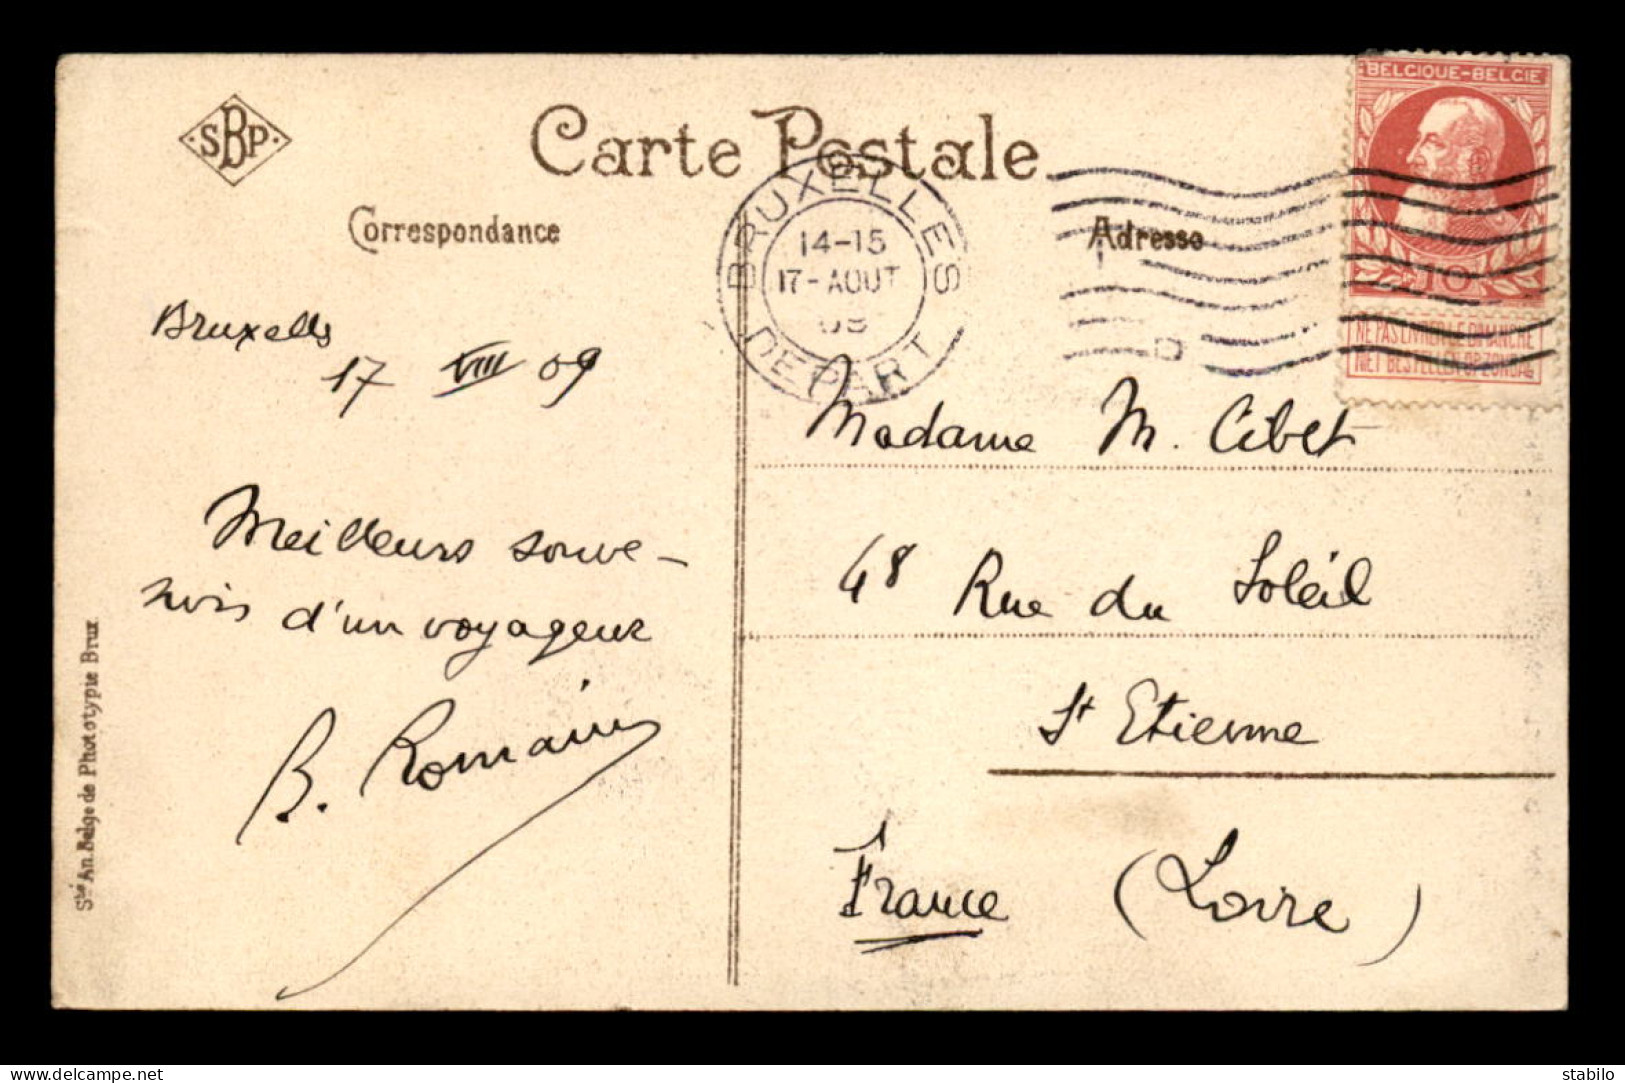 SBP
Carte Postale
Correspondance
Adresse
BELGIQUE-BELGIE
10
NE PAS LIVRER LE DIMANCHE
NIET BESTELLEN OP ZONDAG
BRUXELLES
14-15
17-AOUT
DEPART
Bruxelles
17 VIII 09
Meilleurs souve-
nirs d'un voyageur
B. Romain
Madame M. Cibet
48 Rue du Soleil
St Etienne
France (Loire)
Sté An. Belge de Phototypie Brux
www.delcampe.net
stabilo